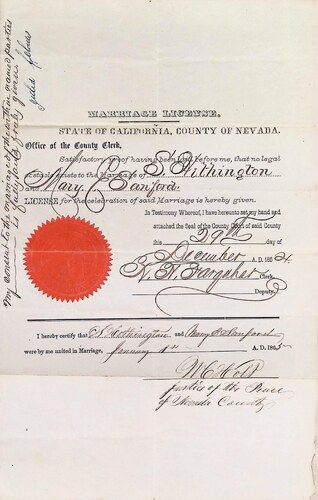 My consent to the marriage of the within named parties
is hereby given
MARRIAGE LICENSE.
STATE OF CALIFORNIA, COUNTY OF NEVADA.
Office of the County Clerk,
Satisfactory proof having been before me, that no legal
exists to the Marriage of S. Withington
and Mary C. Sanford
LICENSE for the celebration of said Marriage is hereby given.
In Testimony Whereof, I have hereunto set my hand and
attached the Seal of the County Court of said County
this 29th day of
December A. D. 1864.
Farquhar Clerk
Deputy.
I hereby certify that S. Withington and Mary C Sanford
were by me united in Marriage, January 1st A. D. 1865
M C Holt
Justice of the Peace
of Nevada County